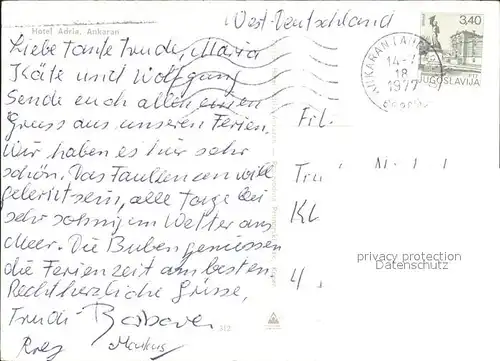 Hotel Adria, Ankaran
West-Deutschland
Liebe Tante Trude, Maria
Käte und Wolfgang
Sende euch allen einen
Gruss aus unseren Ferien.
Wir haben es hier sehr
schön. Das Faullenzen will
gelernt sein, alle Tage bei
sehr sonnigem Wetter am
Meer. Die Buben geniessen
die Ferienzeit am besten
Recht herzliche Grüsse,
Trudi
Markus
312
3,40
JUGOSLAVIJA
ANKARAN
14-7
18
1977
Frl.
Kl
4
privacy protection
Datenschutz